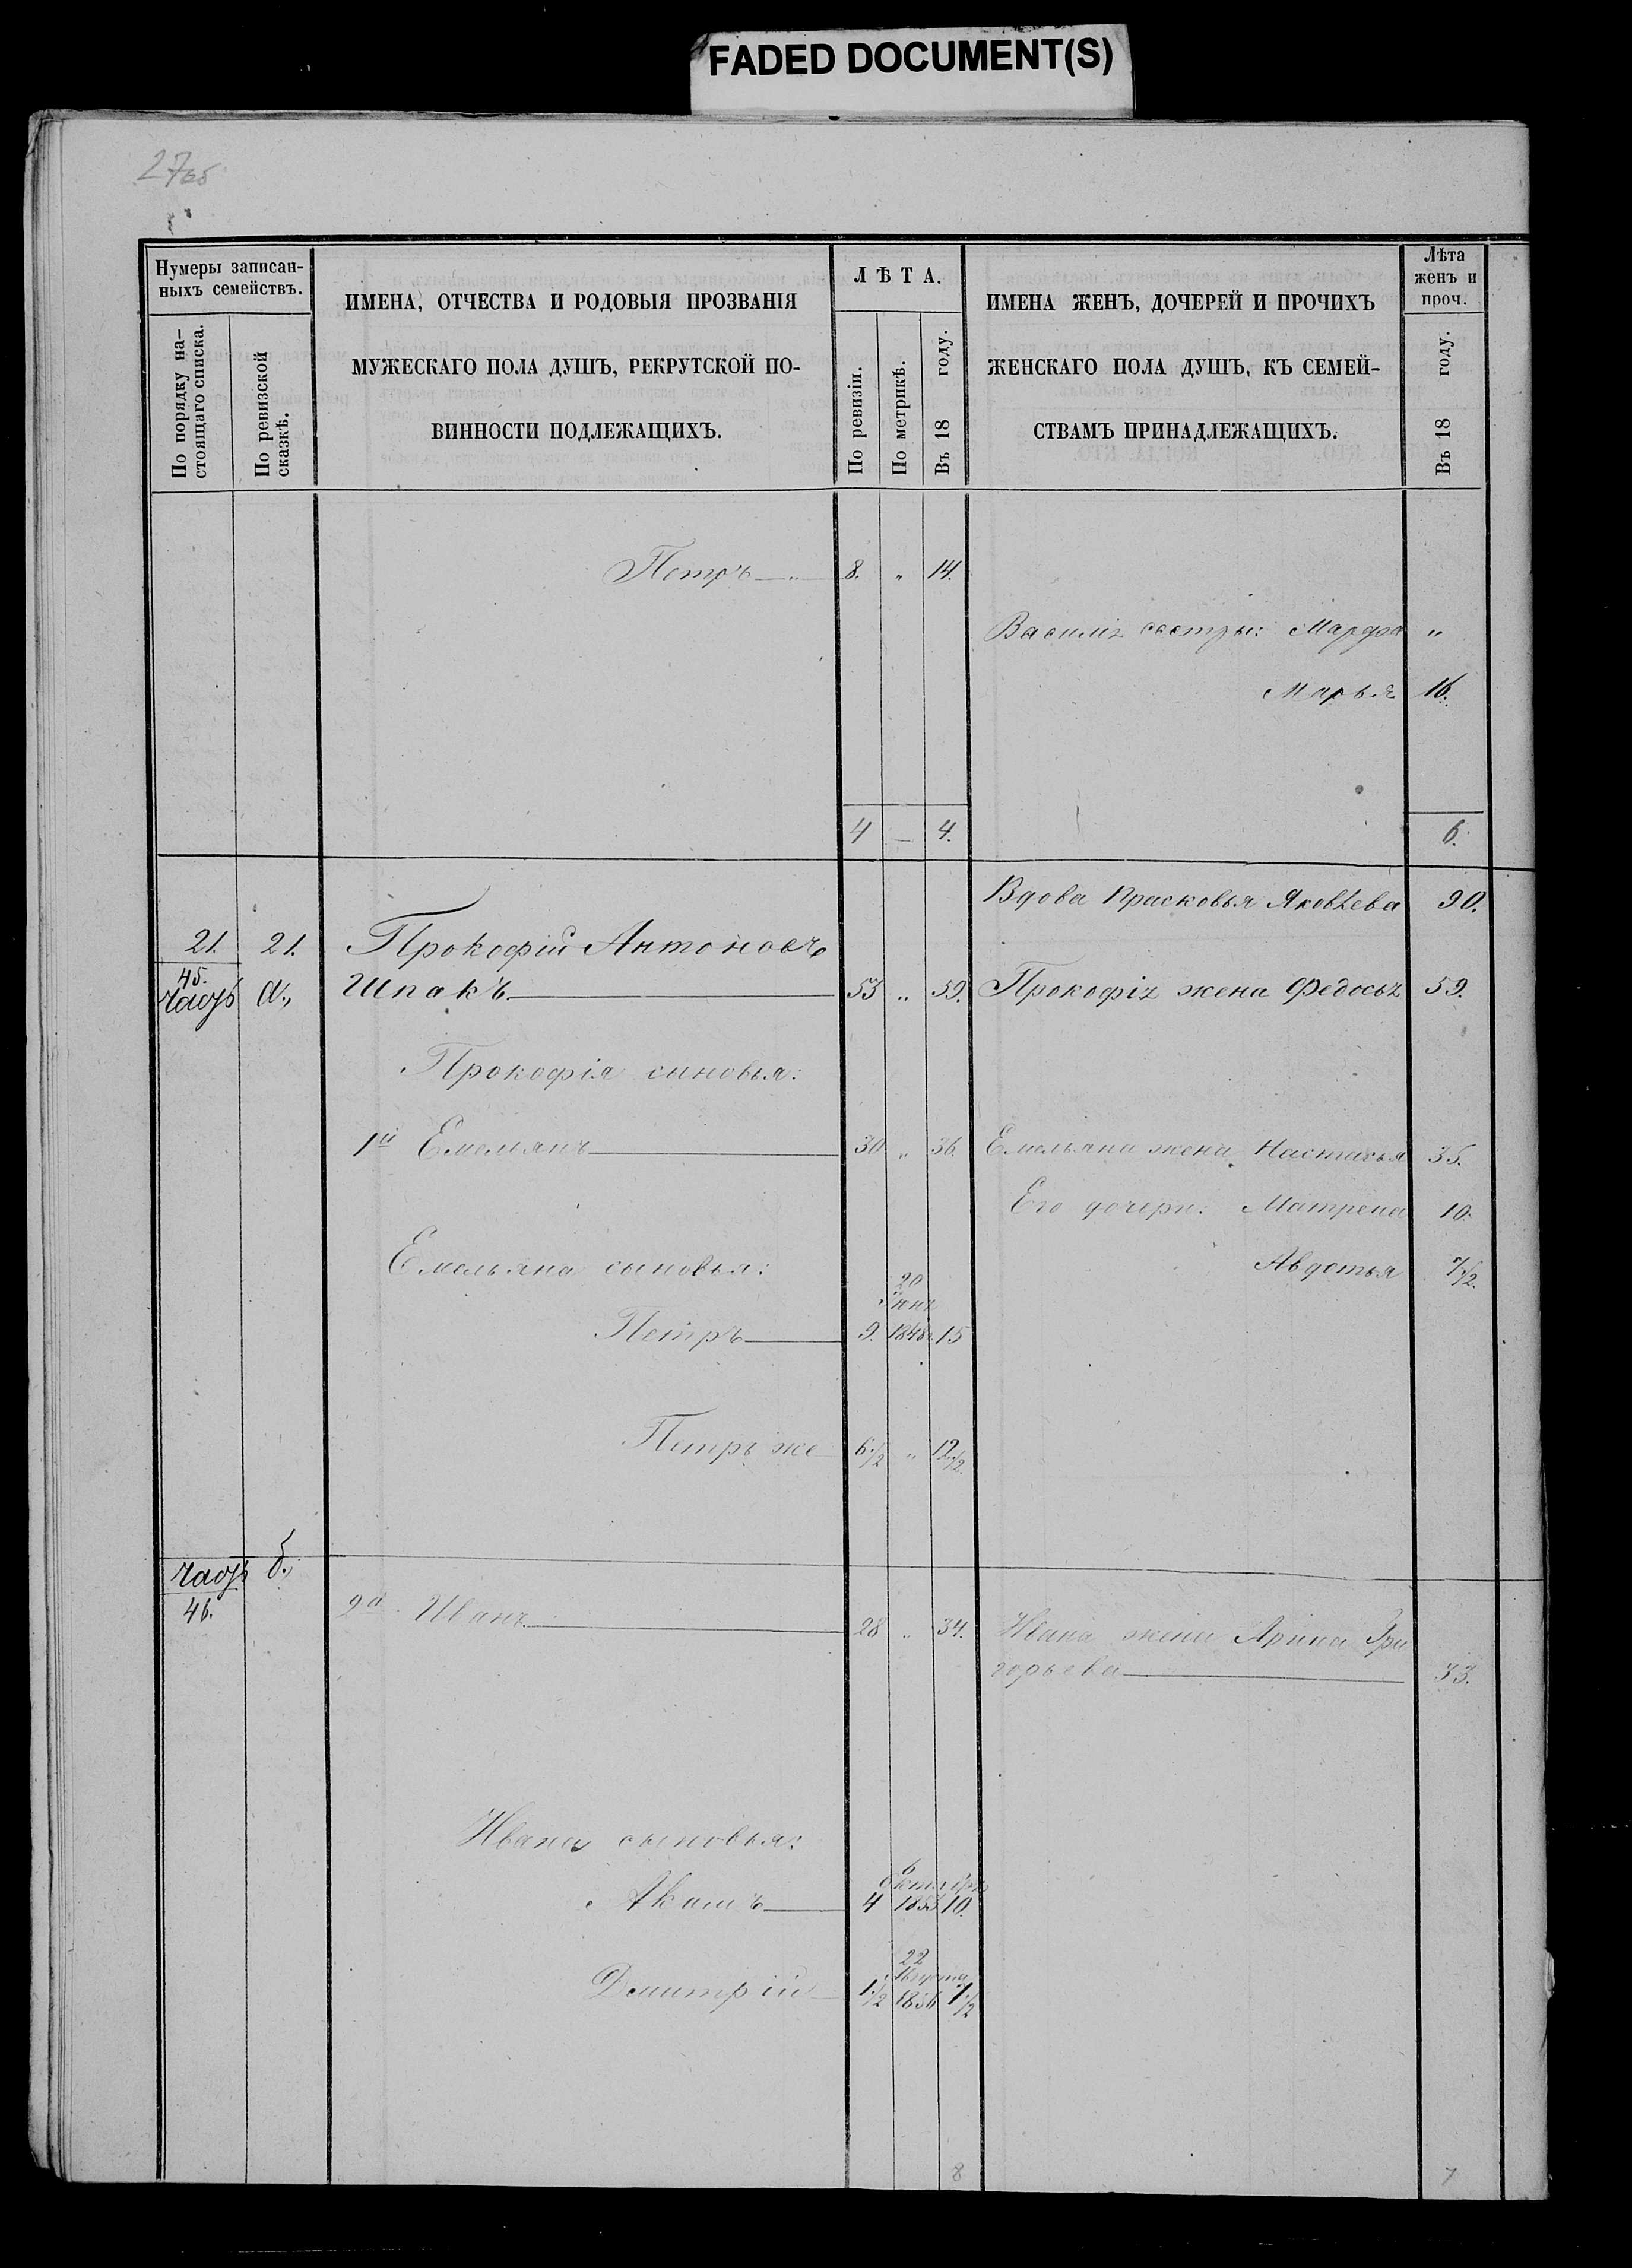 FADED DOCUMENT(S)
27об
Нумеры записан-
ныхъ семействъ.
По порядку на-
стоящаго списка.
По ревизской
сказкѣ.
ИМЕНА, ОТЧЕСТВА И РОДОВЫЯ ПРОЗВАНІЯ
МУЖЕСКАГО ПОЛА ДУШЪ, РЕКРУТСКОЙ ПО-
ВИННОСТИ ПОДЛЕЖАЩИХЪ.
ЛѢТА.
По ревизіи.
По метрикѣ.
Въ 18 году.
ИМЕНА ЖЕНЪ, ДОЧЕРЕЙ И ПРОЧИХЪ
ЖЕНСКАГО ПОЛА ДУШЪ, КЪ СЕМЕЙ-
СТВАМЪ ПРИНАДЛЕЖАЩИХЪ.
Лѣта
женъ и
проч.
Въ 18 году.
Петръ 8. " 14.
Василія сестры: Марфа "
Марья 16.
4 — 4. 6.
Вдова Прасковья Яковлева 90.
21. 21. Прокофій Антоновъ
45. часть а., Шпакъ 53 " 59. Прокофія жена Федосья 59.
Прокофія сыновья:
1й Емельянъ 30 " 36. Емельяна жена Настасья 35.
Его дочери: Матрена 10.
Емельяна сыновья: Авдотья 7½.
20
Іюня
Петръ 9. 1848 15
Петръ же 6½ " 12½.
часть б.,
46.
2й Иванъ 28 " 34. Ивана жена Арина Гри
горьева 33.
Ивана сыновья:
6
Октября
Акимъ 4 1853 10.
22
Августа
Дмитрій 1½ 1856 7½
8 7